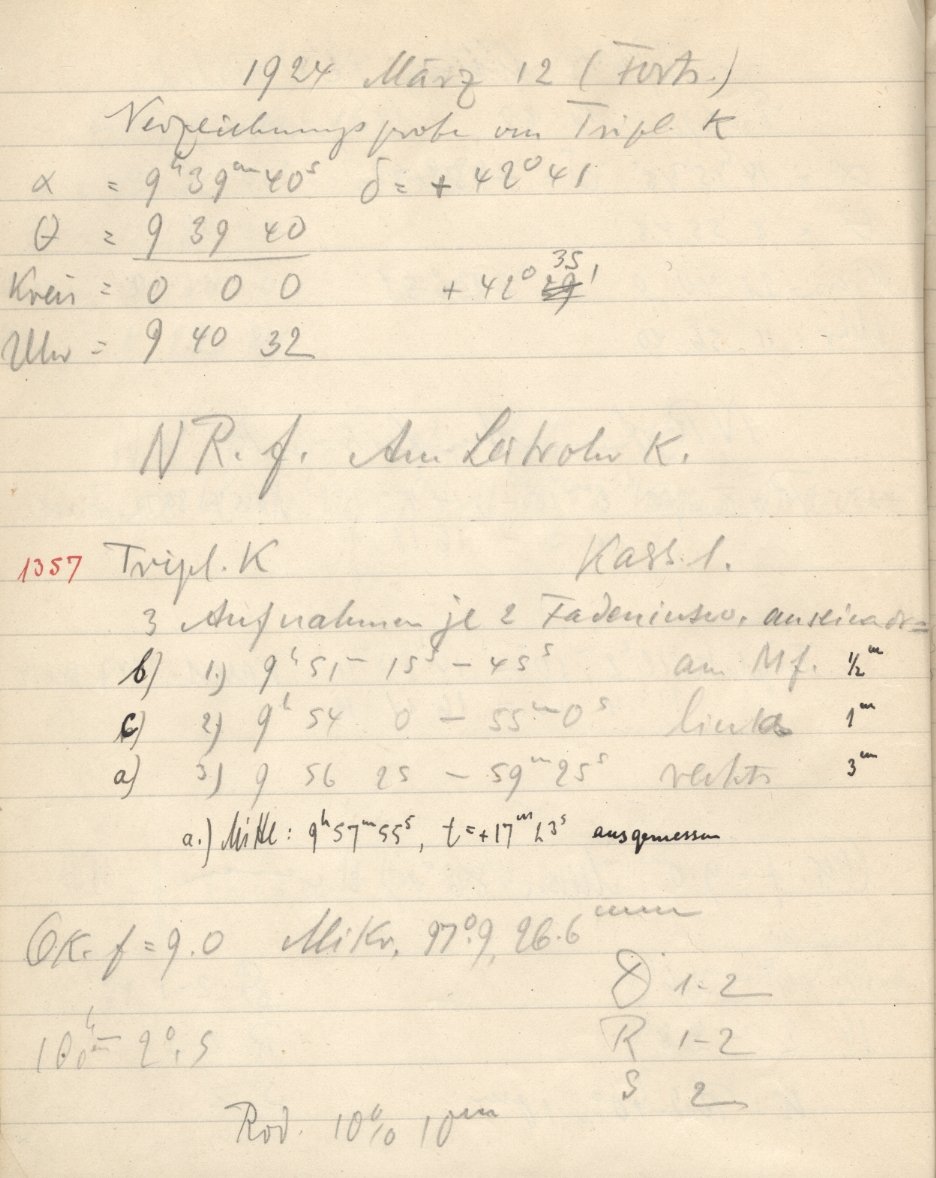 1924 März 12 (Forts.)
Verzeichnungsprobe von Tripl. K
α = 9h 39m 40s δ = + 42° 41'
θ = 9 39 40
Kreis = 0 0 0 + 42° 35'
Uhr = 9 40 32
NR. f. Am Leitrohr K.
1357 Tripl. K Kass. 1.
3 Aufnahmen je 2 Fadeninterv.
b) 1.) 9h 51m 15s – 45s am Mf. ½m
c) 2) 9h 54 0 – 55m 0s links 1m
a) 3) 9 56 25 – 59m 25s rechts 3m
a.) Mitte: 9h 57m 55s, t = +17m 23s ausgemessen
OK. f = 9.0 Mikr. 97°.9, 26.6mm
D 1-2
10h 0m 2°.5
R 1-2
S 2
Rod. 10% 10min